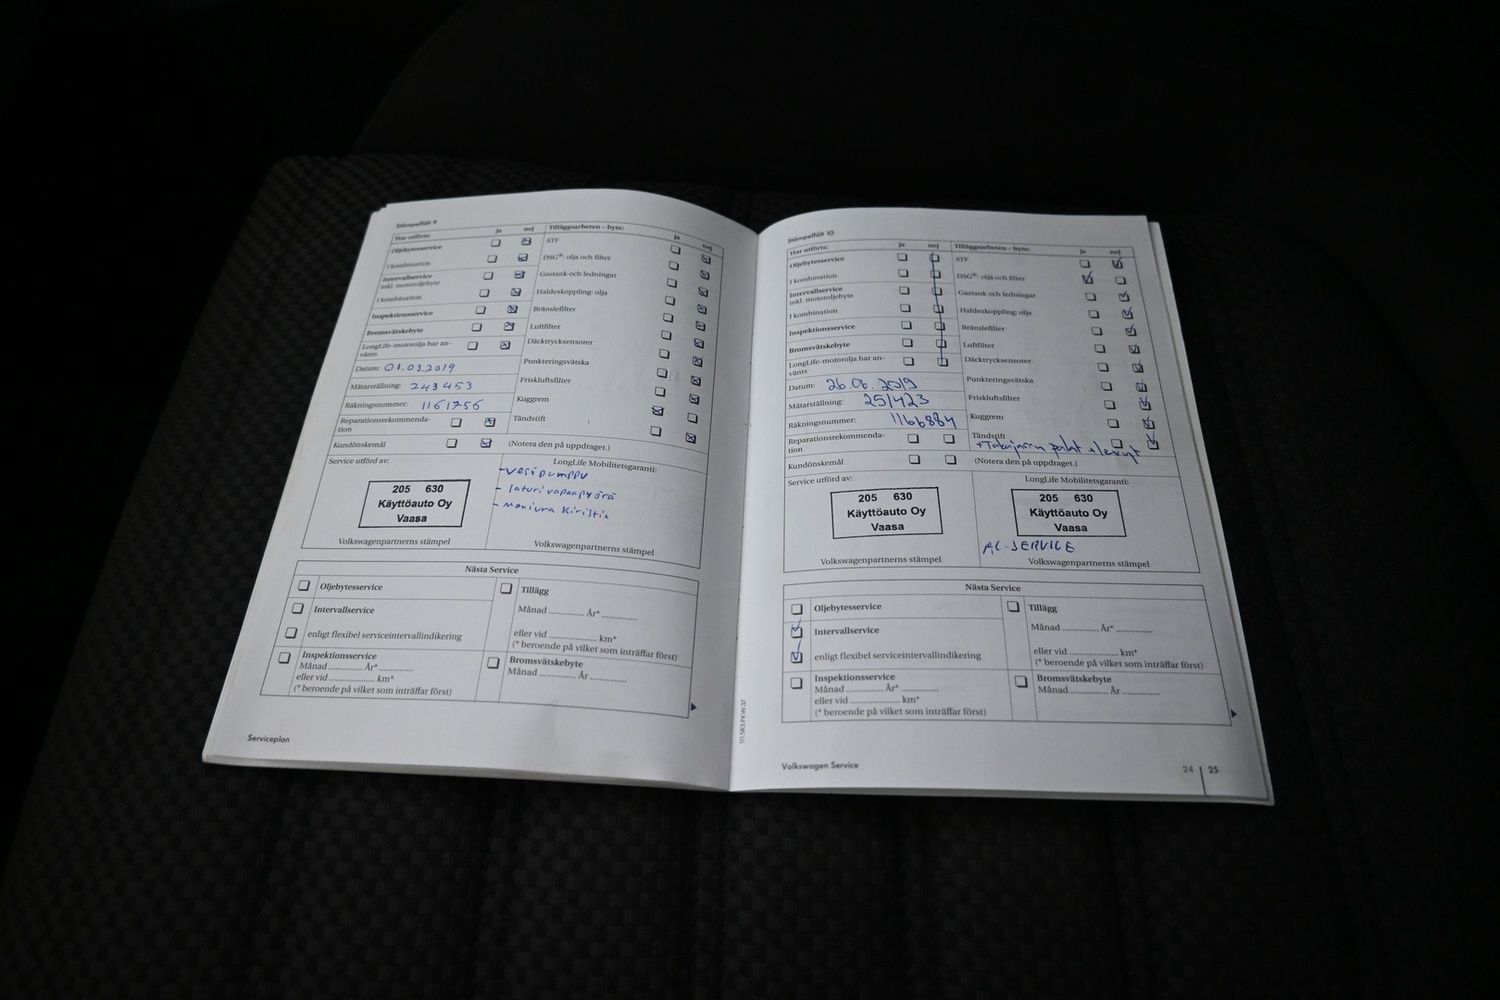 Stämpelfält 9
Har utförts: ja nej Tilläggsarbeten – byte: ja nej
Oljebytesservice
I kombination
Intervallservice
inkl. motoroljebyte
I kombination
Inspektionsservice
Bromsvätskebyte
LongLife-motorolja har an-
vänts
Datum: 01.03.2019
Mätarställning: 243453
Räkningsnummer: 1161756
Reparationsrekommenda-
tion
Kundönskemål
ATF
DSG®: olja och filter
Gastank och ledningar
Haldexkoppling: olja
Bränslefilter
Luftfilter
Däcktrycksensorer
Punkteringsvätska
Friskluftsfilter
Kuggrem
Tändstift
(Notera den på uppdraget.)
Service utförd av:
205 630
Käyttöauto Oy
Vaasa
Volkswagenpartnerns stämpel
LongLife Mobilitetsgaranti:
- vesipumppu
- laturivapaapyörä
- moniura kiristin
Volkswagenpartnerns stämpel
Nästa Service
Oljebytesservice
Intervallservice
enligt flexibel serviceintervallindikering
Inspektionsservice
Månad ............. År* .............
eller vid .................. km*
(* beroende på vilket som inträffar först)
Tillägg
Månad ............. År* .............
eller vid .................. km*
(* beroende på vilket som inträffar först)
Bromsvätskebyte
Månad ............. År .............
Serviceplan
111.5R3.PKW.37
Stämpelfält 10
Har utförts: ja nej Tilläggsarbeten – byte: ja nej
Oljebytesservice
I kombination
Intervallservice
inkl. motoroljebyte
I kombination
Inspektionsservice
Bromsvätskebyte
LongLife-motorolja har an-
vänts
Datum: 26.06.2019
Mätarställning: 251423
Räkningsnummer: 1166884
Reparationsrekommenda-
tion
Kundönskemål
ATF
DSG®: olja och filter
Gastank och ledningar
Haldexkoppling: olja
Bränslefilter
Luftfilter
Däcktrycksensorer
Punkteringsvätska
Friskluftsfilter
Kuggrem
Tändstift
+Takajarru palat + levyt
(Notera den på uppdraget.)
Service utförd av:
205 630
Käyttöauto Oy
Vaasa
Volkswagenpartnerns stämpel
LongLife Mobilitetsgaranti:
205 630
Käyttöauto Oy
Vaasa
AC-SERVICE
Volkswagenpartnerns stämpel
Nästa Service
Oljebytesservice
Intervallservice
enligt flexibel serviceintervallindikering
Inspektionsservice
Månad ............. År* .............
eller vid .................. km*
(* beroende på vilket som inträffar först)
Tillägg
Månad ............. År* .............
eller vid .................. km*
(* beroende på vilket som inträffar först)
Bromsvätskebyte
Månad ............. År .............
Volkswagen Service
24 | 25